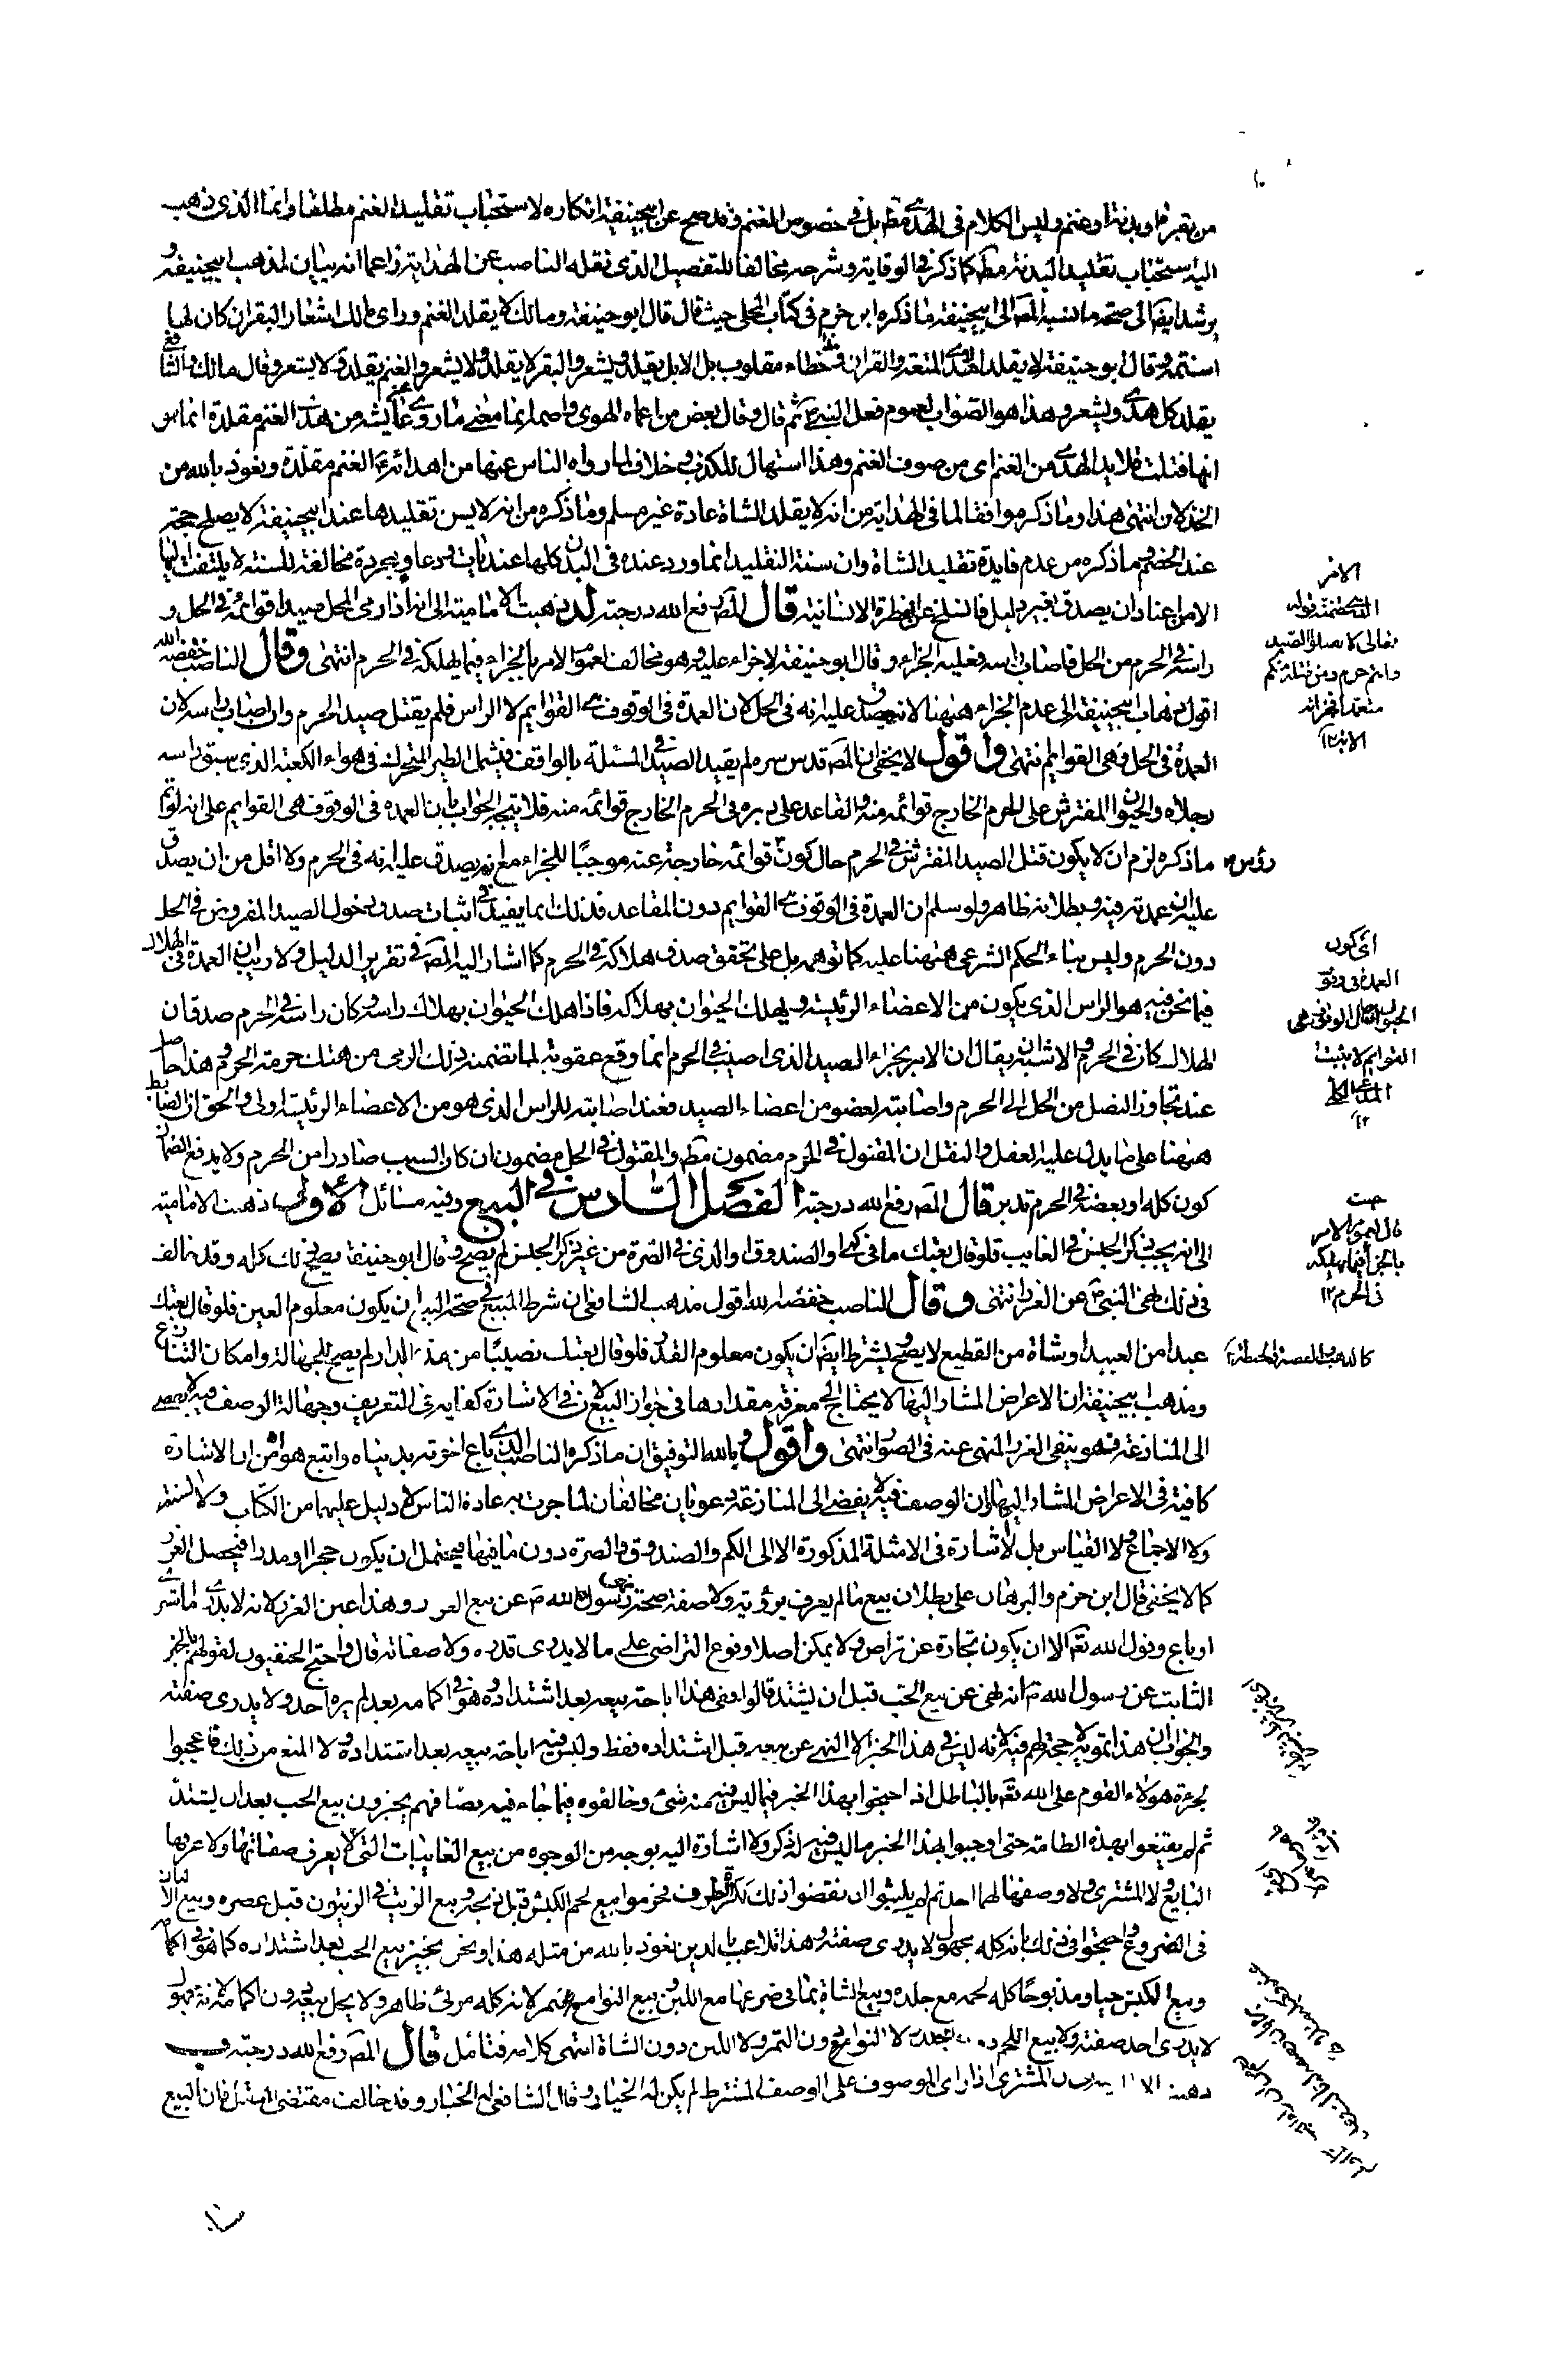 من بقرة او بدنة او غنم وليس الكلام فى الهدى مط بل فى خصوص الغنم وقد صح عن ابيحنيفة انكاره لاستحباب تقليد الغنم مطلقا وانما الذى ذهب
اليه استحباب تقليد البدنة مط كما ذكر فى الوقاية وشرحه مخالفا للتفصيل الذى نقله الناصب عن الهداية زاعما انه بيان لمذهب ابيحنيفة و
يرشد ايضا الى صحة ما نسبه المص الى ابيحنيفة ما ذكره ابن حزم فى كتاب المحلى حيث قال قال ابو حنيفة ومالك لا يقلد الغنم وراى مالك اشعار البقر ان كان لها
اسنمة وقال ابو حنيفة لا يقلد الا هدى المتعة والقران وهذا خطاء مقلوب بل الابل يقلد ويشعر والبقر لا يقلد ولا يشعر والغنم يقلد ولا يشعر وقال مالك والشافعى
يقلد كل هدى ويشعر وهذا هو الصواب لعموم فعل النبى ثم قال وقال بعض من اعماه الهوى واصمه انما معنى ما روى عن عائشة من هدى الغنم مقلدة انما هى
انها فتلت قلايد الهدى من الغنم اى من صوف الغنم وهذا استهال للكذب وخلاف لما رواه الناس عنها من اهدائه الغنم مقلدة ونعوذ بالله من
الخذلان انتهى هذا وما ذكر موافقا لما فى الهداية من انه لا يقلد الشاة عادة غير مسلم وما ذكره من انه لا يسن تقليدها عند ابيحنيفة لا يصلح حجة
عند الخصم وما ذكره من عدم فايدة تقليد الشاة وان سنة التقليد انما ورد عنده فى البدن كلها عنديات ودعاو مجردة مخالفة للسنة لا يلتفت اليها
الا من اعتاد ان يصدق بغير دليل فانسلخ عن الفطرة الانسانية قال المص رفع الله درجته لد ذهبت الامامية الى انه اذا رمى المحل صيدا قوائمه فى الحل و
راسه فى الحرم من الحل فاصاب راسه فعليه الجزاء وقال ابو حنيفة لا جزاء عليه وهو مخالف لعموم الامر بالجزاء فيما يهلكه فى الحرم انتهى وقال الناصب خفضه الله
اقول ذهاب ابيحنيفة الى عدم الجزاء ههنا لانه يصدق عليه انه فى الحل لان العمدة فى الوقوف هى القوايم لا الراس فلم يقتل صيد الحرم وان اصاب راسه لان
العمدة فى الحل وهى القوايم انتهى واقول لا يخفى ان المص قدس سره لم يقيد الصيد فى المسئلة بالواقف فيشمل الطير المتحرك فى هواء الكعبة الذى سبق راسه
رجلاه والحيوان المفترش على الحرم الخارج قوائمه منه والقاعد على دبره فى الحرم الخارج قوائمه منه فلا يتجه الجواب بان العمدة فى الوقوف هى القوايم على انه لو تم
ما ذكره لزم ان لا يكون قتل الصيد المفترش فى الحرم حال كون قوائمه خارجة عنه موجبًا للجزاء مع انه يصدق عليه انه فى الحرم ولا اقل من ان يصدق
عليه ان عمدته فيه وبطلانه ظاهر ولو سلم ان العمدة فى الوقوف هى القوايم دون المقاعد فذلك انما يفيد فى اثبات صدق دخول الصيد المفروض فى الحل
دون الحرم وليس بناء الحكم الشرعى ههنا عليه كما توهمه بل على تحقق صدق هلاكه فى الحرم كما اشار اليه المص فى تقرير الدليل ولا ريب ان العمدة فى الهلاك
فيما نحن فيه هو الراس الذى يكون من الاعضاء الرئيسة ويهلك الحيوان بهلاكه فاذا هلك الحيوان بهلاك راسه وكان راسه فى الحرم صدق ان
الهلاك كان فى الحرم والاشبه ان يقال ان الامر بجزاء الصيد الذى اصيب فى الحرم انما وقع عقوبة لما تضمنه ذلك الرمى من هتك حرمة الحرم وهذا حاصل
عند تجاوز النصل من الحل الى الحرم واصابته لعضو من اعضاء الصيد فعند اصابته للراس الذى هو من الاعضاء الرئيسة اولى والحق ان الضابط
ههنا على ما يدل عليه العقل والنقل ان المقتول فى الحرم مضمون مط والمقتول فى الحل مضمون ان كان السبب صادرا من الحرم ولا يدفع الضمان
كون كله او بعضه فى الحرم تدبر قال المص رفع الله درجته الفصل السادس فى البيع وفيه مسائل الاولى ذهبت الامامية
الى انه يجب ذكر الجنس فى الغايب فلو قال بعتك ما فى كمى او الصندوق او الذى فى الصرة من غير ذكر الجنس لم يصح وقال ابو حنيفة يصح ذلك كله وقد خالف
فى ذلك نهى النبى ص عن الغرر انتهى وقال الناصب خفضه الله اقول مذهب الشافعى ان شرط المبيع فى صحة البيع ان يكون معلوم العين فلو قال بعتك
عبدا من العبيد او شاة من القطيع لا يصح ويشترط ايضا ان يكون معلوم القدر فلو قال بعتك نصيبًا من هذه الدار لم يصح للجهالة وامكان التنازع
ومذهب ابيحنيفة ان الاعراض المشار اليها لا يحتاج الى معرفة مقدارها فى جواز البيع لان فى الاشارة كفاية فى التعريف وجهالة الوصف فيه لا يفضى
الى المنازعة فهو ينفى الغرر المنهى عنه فى الصور انتهى واقول وبالله التوفيق ان ما ذكره الناصب الذى باع اخرته بدنياه واتبع هواه من ان الاشارة
كافية فى الاعراض المشار اليها وان الوصف فيه لا يفضى الى المنازعة دعويان مخالفان لما جرت به عادة الناس لا دليل عليهما من الكتاب ولا السنة
ولا الاجماع ولا القياس بل لا اشارة فى الامثلة المذكورة الا الى الكم والصندوق والصرة دون ما فيها فيحتمل ان يكون حجرا او مدرا فيحصل الغرر
كما لا يخفى قال ابن حزم والبرهان على بطلان بيع ما لم يعرف برؤيته ولا صفة صحة نهى رسول الله ص عن بيع الغرر وهذا عين الغرر لانه لا يدرى ما اشترى
او باع وقول الله تعالى الا ان يكون تجارة عن تراض ولا يمكن اصلا وقوع التراضى على ما لا يدرى قدره ولا صفاته قال واحتج الحنفيون لقولهم بالخبر
الثابت عن رسول الله ص انه نهى عن بيع الحب قبل ان يشتد قالوا ففى هذا اباحة بيعه بعد اشتداده وهو فى اكمامه بعد لم يره احد ولا يدرى صفته
والجواب ان هذا تمويه لا حجة لهم فيه لانه ليس فى هذا الخبر الا النهى عن بيعه قبل اشتداده فقط وليس فيه اباحة بيعه بعد اشتداده ولا المنع من ذلك فاعجبوا
لجرءة هؤلاء القوم على الله تعالى بالباطل اذ احتجوا بهذا الخبر فيما ليس فيه منه شئ وخالفوه فيما جاء فيه نصا فهم يجيزون بيع الحب بعد ان يشتد
ثم لم يقنعوا بهذه الطامة حتى اوجبوا بهذا الخبر ما ليس فيه له ذكر ولا اشارة اليه بوجه من الوجوه من بيع الغايبات التى لا يعرف صفاتها ولا عرفها
البايع ولا المشترى ولا وصفها لهما احد ثم لم يلبثوا ان نقضوا ذلك فحرموا بيع لحم الكبش قبل ذبحه وبيع الزيت فى الزيتون قبل عصره وبيع الالبان
فى الضروع واحتجوا فى ذلك بانه كله مجهول لا يدرى صفته وهذا تلاعب بالدين نعوذ بالله من مثله هذا ونحن نجيز بيع الحب بعد اشتداده كما هو فى اكمامه
وبيع الكبش حيا ومذبوحًا كله لحمه مع جلده وبيع الشاة بما فى ضرعها مع اللبن وبيع النوا مع التمر لانه كله مرئى ظاهر ولا يحل بيعه دون اكمامه لانه مجهول
لا يدرى احد صفته ولا بيع اللحم دون الجلد ولا النوا دون التمر ولا اللبن دون الشاة انتهى كلامه فتامل قال المص رفع الله درجته ب
ذهبت الامامية الى ان المشترى اذا راى الموصوف على الوصف المشترط لم يكن له الخيار وقال الشافعى له الخيار وقد خالف مقتضى العقل فان البيع
الامر
الذى تضمنته قوله
تعالى لا تقتلوا الصيد
وانتم حرم ومن قتله منكم
متعمدا فجزاء
الاية ١٢
رؤس
اى كون
العمدة فى وقوف
الحيوان حال الوقوف هى
القوايم لا يثبت
١٢
حيث
قال لعموم الامر
بالجزاء فيما يهلكه
فى الحرم ١٢